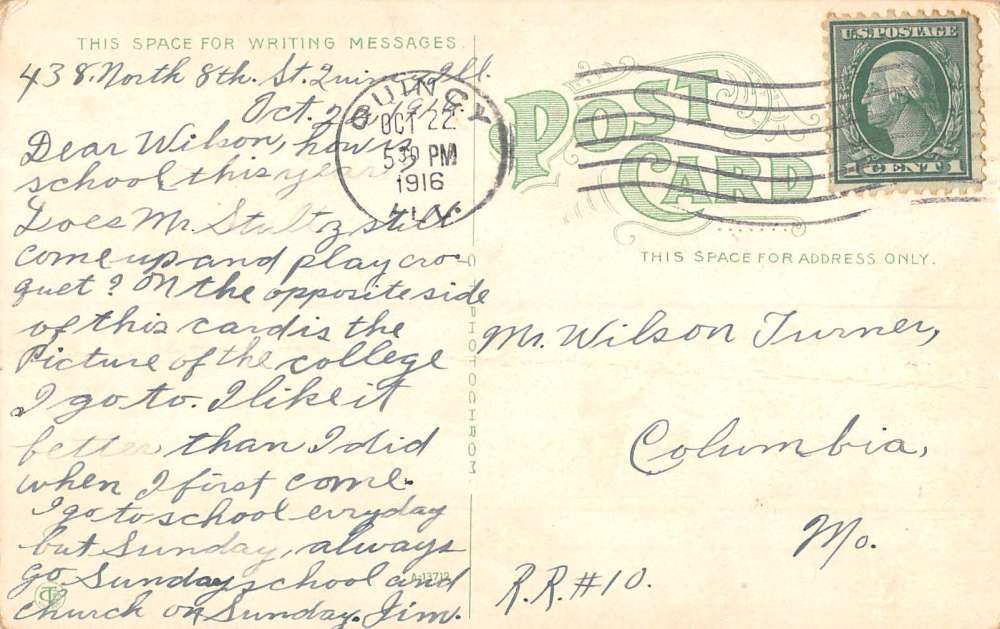 THIS SPACE FOR WRITING MESSAGES.
438. North 8th. St. Quincy Ill.
Oct. 1916.
Dear Wilson, how is
school this year
Does Mr. Stultz still
come up and play cro-
quet? On the opposite side
of this card is the
Picture of the college
I go to. I like it
better than I did
when I first come.
I go to school evryday
but Sunday, always
go Sunday school and
church on Sunday. Jim.
A-13712
CT
C.T. PHOTOCHROM
QUINCY
OCT 22
530 PM
1916
ILL.
POST
CARD
U.S. POSTAGE
1 CENT 1
THIS SPACE FOR ADDRESS ONLY.
Mr. Wilson Turner,
Columbia,
Mo.
R.R. #10.